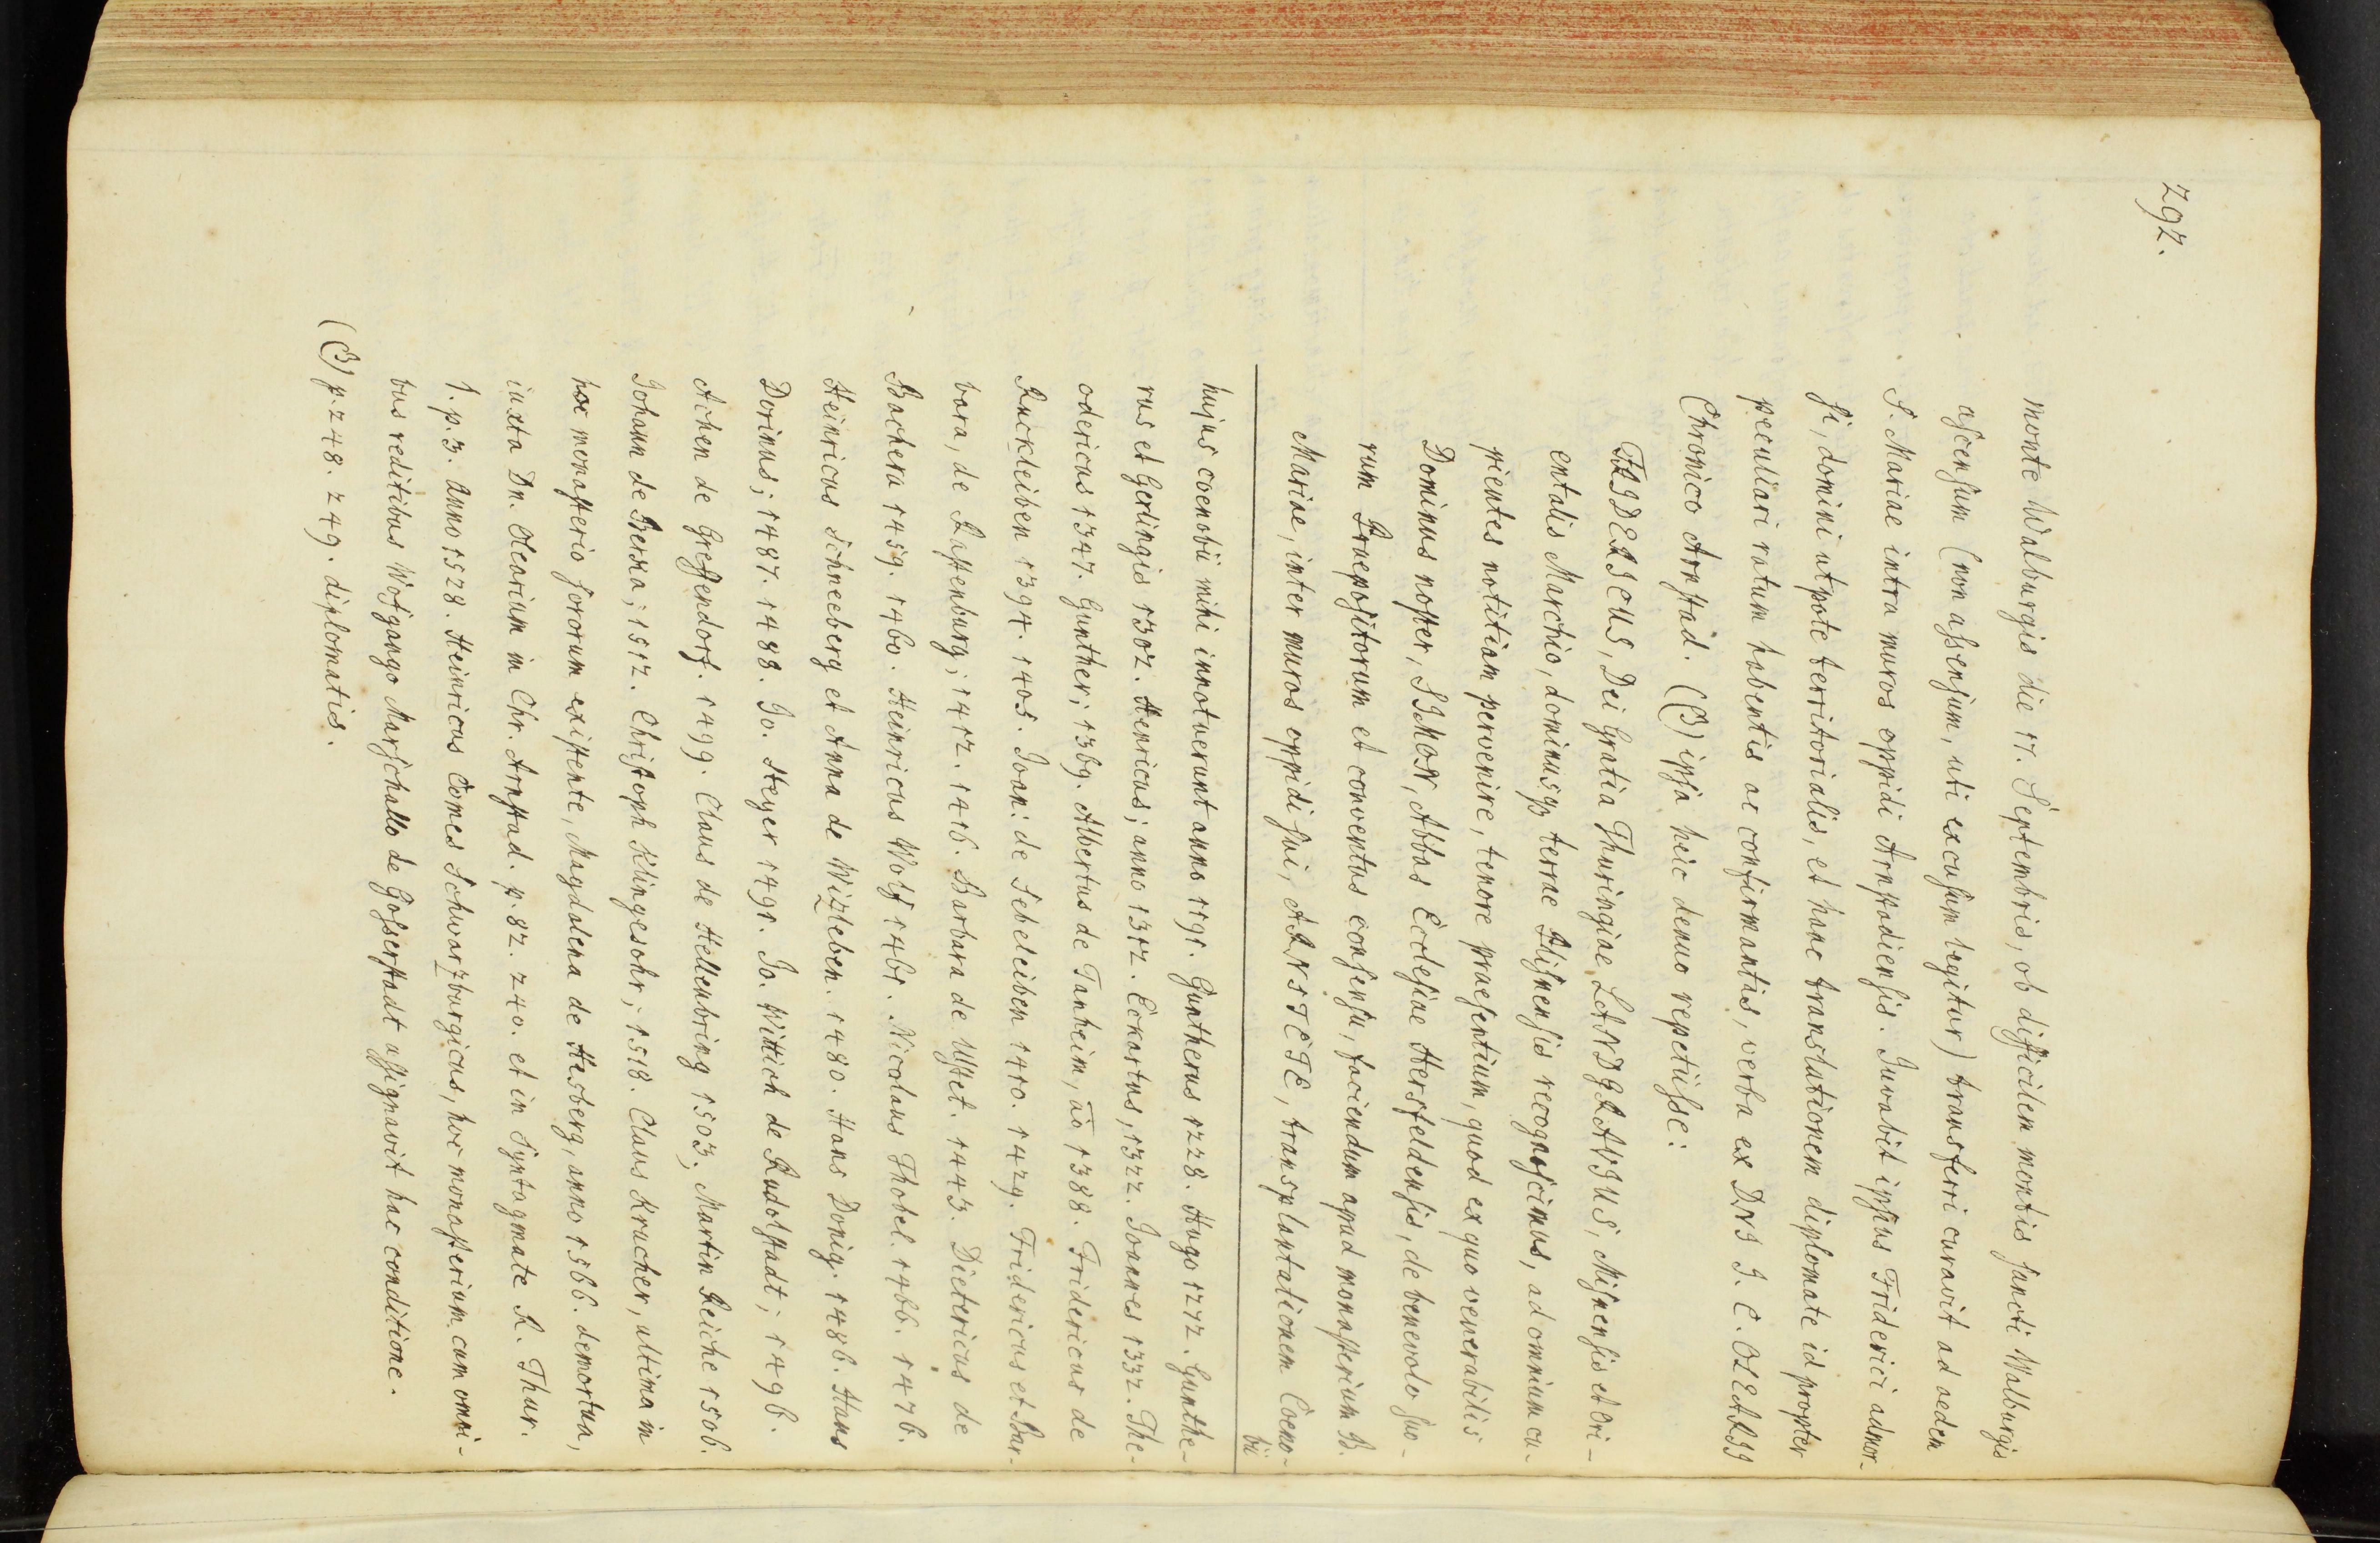 292.
monte Walburgis die 17. Septembris, ob difficilem montis sancti Walburgis
ascensum (non assensum, uti excusum legitur) transferri curavit ad aedem
S. Mariae intra muros oppidi Arnstadiensis. Juvabit ipsius Friderici admor-
si, domini utpote territorialis, et hanc translationem diplomate id propter
peculiari ratum habentis ac confirmantis, verba ex DNI I. C. OLEARII
Chronico Arnstad. (β) ipsa heic denuo repetiisse:
FRIDERICUS, Dei Gratia Thuringiae LANDGRAVIUS, Misnensis et Ori-
entalis Marchio, dominusq3 terrae Plisnensis recognoscimus, ad omnium cu-
pientes notitiam pervenire, tenore praesentium, quod ex quo venerabilis
Dominus noster, SIMON, Abbas Ecclesiae Hersfeldensis, de benevolo suo-
rum Praepositorum et conventus consensu, faciendum apud monasterium B.
Mariae, inter muros oppidi sui, ARNSTETE, transplantationem Coeno-
bii
hujus coenobii mihi innotuerunt anno 1191. Guntherus 1228. Hugo 1272. Gunthe-
rus et Gerlingis 1302. Henricus; anno 1312. Eckartus, 1322. Joannes 1332. The-
odericus 1347. Gunther; 1369. Albertus de Tanheim, ao 1388. Fridericus de
Ruckleiben 1394. 1405. Joan: de Sebeleiben 1410. 1429. Fridericus et Bar-
bara, de Rastenburg; 1412. 1416. Barbara de Wstet. 1443. Dietericus de
Bachera 1459. 1460. Heinricus Wolf 1461. Nicolaus Thobel. 1466. 1476.
Heinricus Schneeberg et Anna de Wizleben. 1480. Hans Donig. 1486. Hans
Dorinus; 1487. 1488. Jo. Heyer 1491. Jo. Wittich de Rudolstadt; 1496.
Achen de Greffendorf. 1499. Claus de Hellenbring 1503, Martin Reiche 1506.
Johann de Berka; 1512. Christoph Klingesohr; 1518. Claus Kracher, ultima in
hoc monasterio sororum existente, Magdalena de Hesberg, anno 1566. demortua,
iuxta Dn. Olearium in Chr. Arnstad. p. 82. 240. et in Syntagmate R. Thur.
1. p. 3. Anno 1528. Heinricus Comes Schwarzburgicus, hoc monasterium cum omni-
bus reditibus Wofgango Marschallo de Gosserstadt assignavit hac conditione.
(β) p. 248. 249. diplomatis.